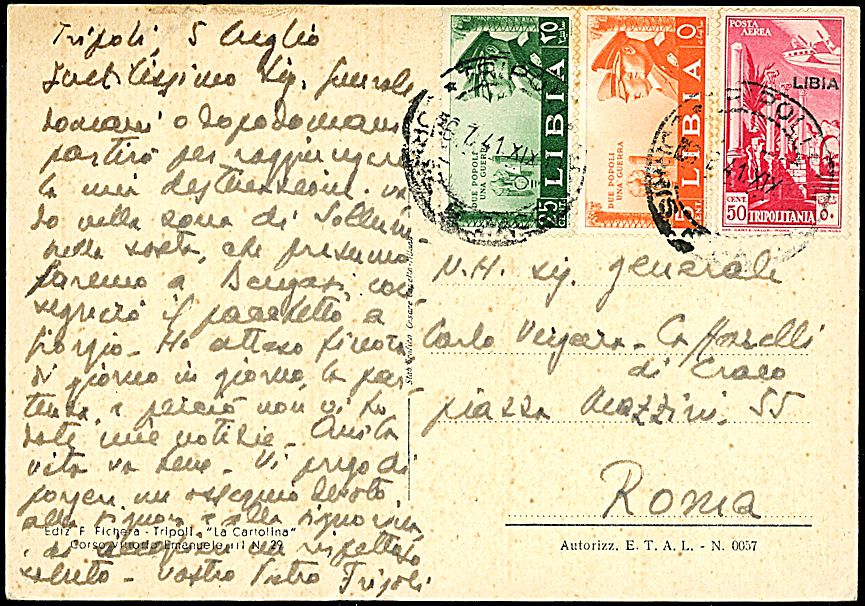 Tripoli, 5 luglio
Gentilissimo Sig. Generale
domani o dopodomani
partirò per raggiungere
la mia destinazione. va-
do nella zona di Sollum.
nella sosta, che presumo
faremo a Bengasi, con-
segnerò il pacchetto a
Giorgio. Ho atteso finora
di giorno in giorno, la par-
tenza e perciò non vi ho
dato mie notizie. Quista
vita va bene. Vi prego di
porgere un ossequio devoto
alla signora e alla signorina.
ed un rispettoso
saluto. vostro Pietro Tripoli
Ediz. F. Fichera - Tripoli. "La Cartolina"
Corso Vittorio Emanuele III N. 29
Stab. Grafico Cesare
25 CENT. LIBIA
DUE POPOLI
UNA GUERRA
5 CENT. LIBIA
DUE POPOLI
UNA GUERRA
POSTA
AEREA
LIBIA
CENT.
50 TRIPOLITANIA
TRIPOLI
6.7.41.XIX
TRIPOLI
41.XIX
N.H. sig. generale
Carlo Vergara-Caffarelli
di Craco
piazza Mazzini, 55
Roma
Autorizz. E. T. A. L. - N. 0057